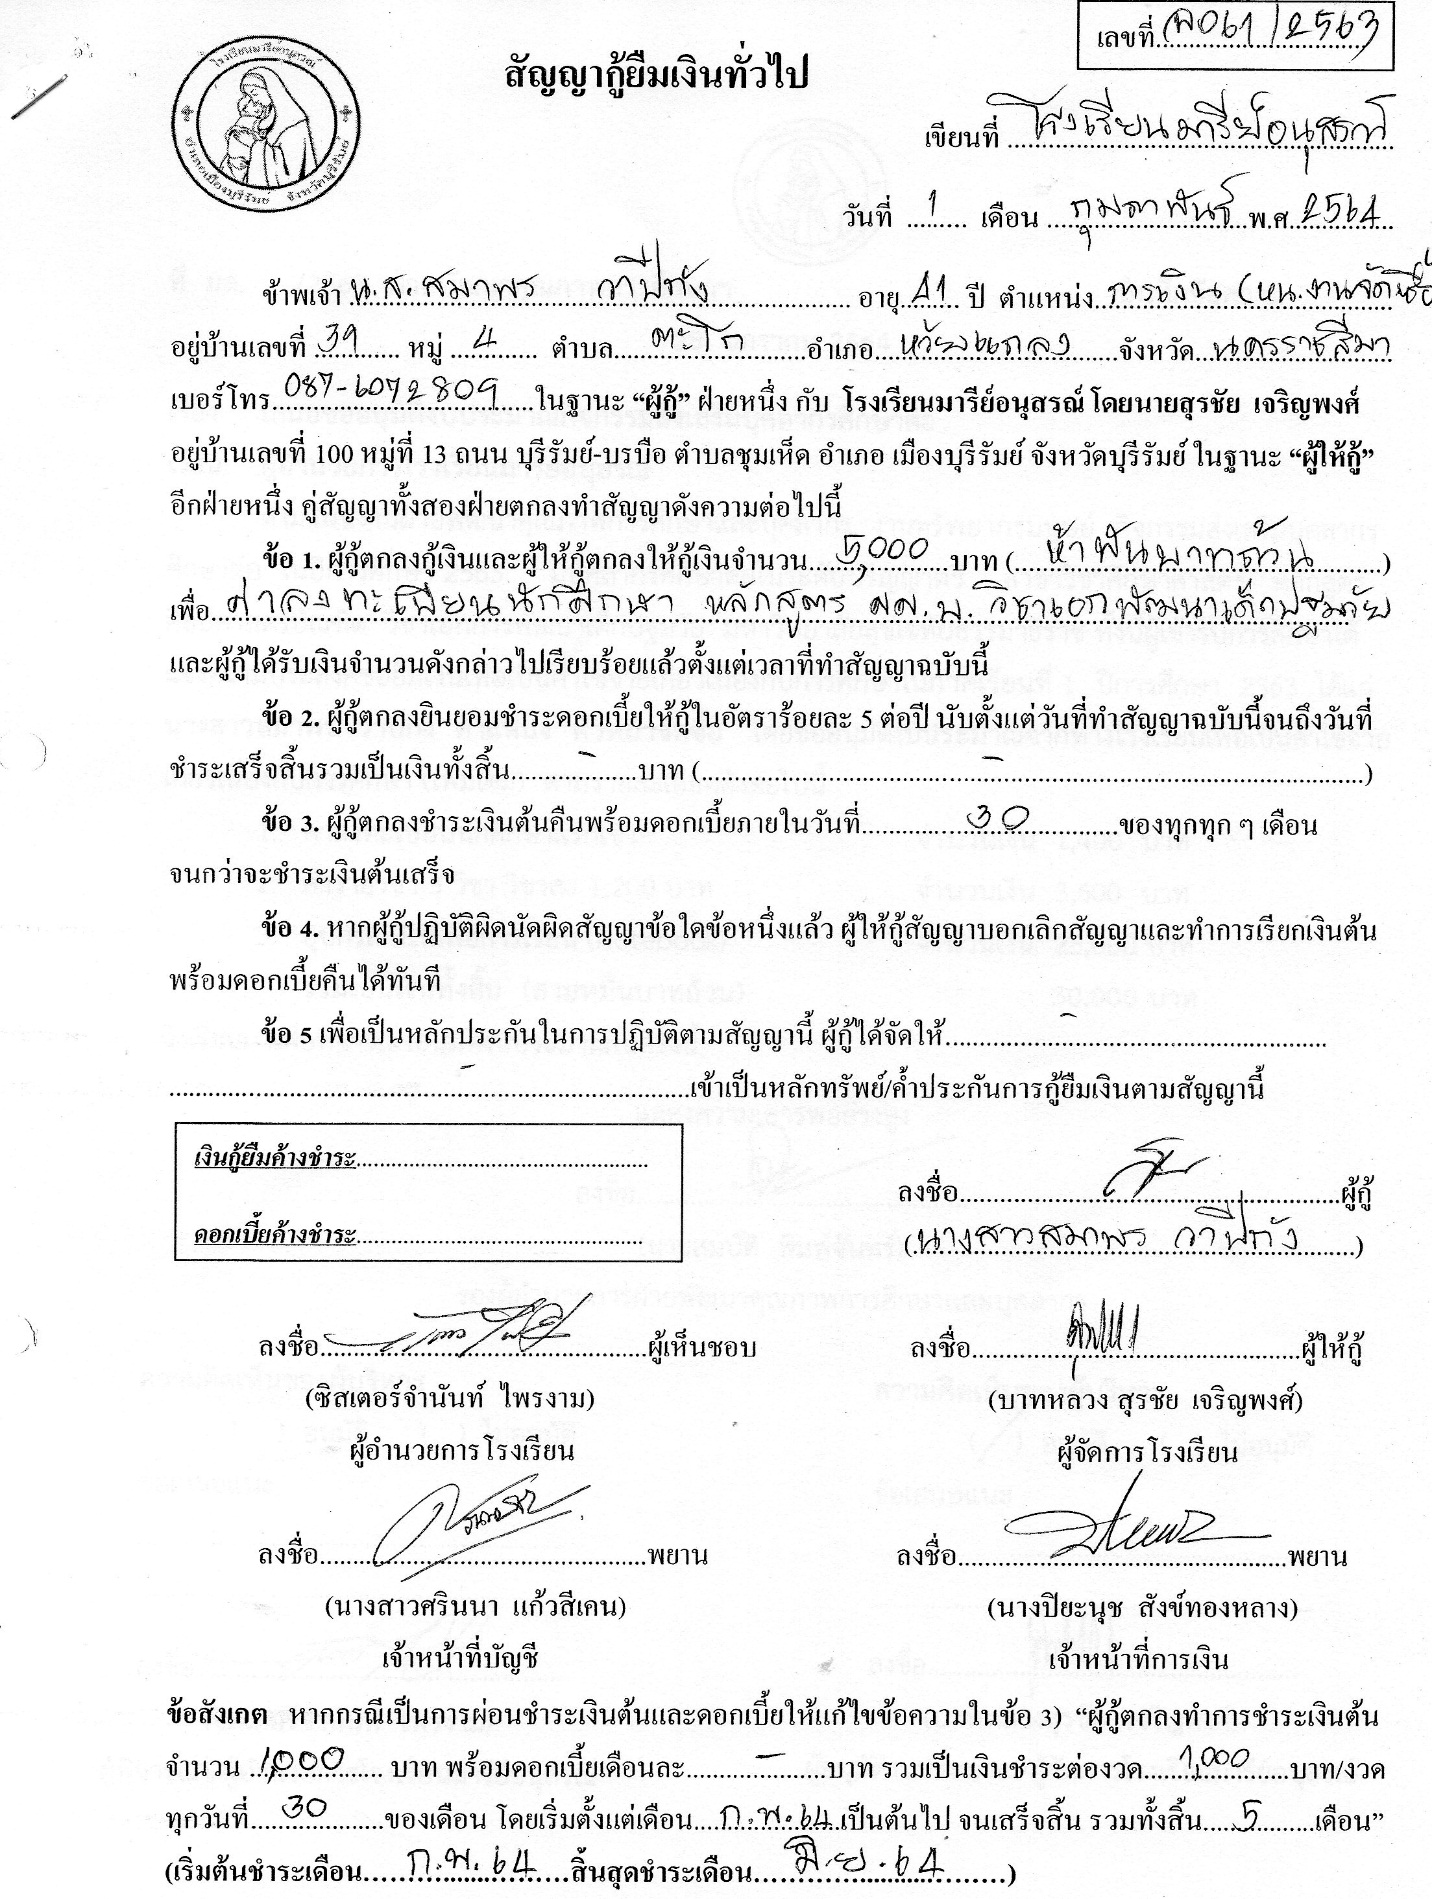 เลขที่ A061/2563
โรงเรียนมารีย์อนุสรณ์
อำเภอเมืองบุรีรัมย์ จังหวัดบุรีรัมย์
สัญญากู้ยืมเงินทั่วไป
เขียนที่ โรงเรียนมารีย์อนุสรณ์
วันที่ 1 เดือน กุมภาพันธ์ พ.ศ. 2564
ข้าพเจ้า น.ส. สมาพร วาปีทัง อายุ 41 ปี ตำแหน่ง การเงิน (หน.งานจัดซื้อ
อยู่บ้านเลขที่ 39 หมู่ 4 ตำบล ตะโก อำเภอ ห้วยแถลง จังหวัด นครราชสีมา
เบอร์โทร. 087-6072809 ในฐานะ “ผู้กู้” ฝ่ายหนึ่ง กับ โรงเรียนมารีย์อนุสรณ์ โดยนายสุรชัย เจริญพงศ์
อยู่บ้านเลขที่ 100 หมู่ที่ 13 ถนน บุรีรัมย์-บรบือ ตำบลชุมเห็ด อำเภอ เมืองบุรีรัมย์ จังหวัดบุรีรัมย์ ในฐานะ “ผู้ให้กู้”
อีกฝ่ายหนึ่ง คู่สัญญาทั้งสองฝ่ายตกลงทำสัญญาดังความต่อไปนี้
ข้อ 1. ผู้กู้ตกลงกู้เงินและผู้ให้กู้ตกลงให้กู้เงินจำนวน 5,000 บาท ( ห้าพันบาทถ้วน )
เพื่อ ค่าลงทะเบียนนักศึกษา หลักสูตร ศศ.บ. วิชาเอกพัฒนาเด็กปฐมวัย
และผู้กู้ได้รับเงินจำนวนดังกล่าวไปเรียบร้อยแล้วตั้งแต่เวลาที่ทำสัญญาฉบับนี้
ข้อ 2. ผู้กู้ตกลงยินยอมชำระดอกเบี้ยให้กู้ในอัตราร้อยละ 5 ต่อปี นับตั้งแต่วันที่ทำสัญญาฉบับนี้จนถึงวันที่
ชำระเสร็จสิ้นรวมเป็นเงินทั้งสิ้น - บาท ( - )
ข้อ 3. ผู้กู้ตกลงชำระเงินต้นคืนพร้อมดอกเบี้ยภายในวันที่ 30 ของทุกทุก ๆ เดือน
จนกว่าจะชำระเงินต้นเสร็จ
ข้อ 4. หากผู้กู้ปฏิบัติผิดนัดผิดสัญญาข้อใดข้อหนึ่งแล้ว ผู้ให้กู้สัญญาบอกเลิกสัญญาและทำการเรียกเงินต้น
พร้อมดอกเบี้ยคืนได้ทันที
ข้อ 5 เพื่อเป็นหลักประกันในการปฏิบัติตามสัญญานี้ ผู้กู้ได้จัดให้ -
- เข้าเป็นหลักทรัพย์/ค้ำประกันการกู้ยืมเงินตามสัญญานี้
เงินกู้ยืมค้างชำระ
ดอกเบี้ยค้างชำระ
ลงชื่อ ผู้กู้
(นางสาวสมาพร วาปีทัง)
ลงชื่อ ผู้เห็นชอบ ลงชื่อ ผู้ให้กู้
(ซิสเตอร์จำนันท์ ไพรงาม) (บาทหลวง สุรชัย เจริญพงศ์)
ผู้อำนวยการโรงเรียน ผู้จัดการโรงเรียน
ลงชื่อ พยาน ลงชื่อ พยาน
(นางสาวศรินนา แก้วสีเคน) (นางปิยะนุช สังข์ทองหลาง)
เจ้าหน้าที่บัญชี เจ้าหน้าที่การเงิน
ข้อสังเกต หากกรณีเป็นการผ่อนชำระเงินต้นและดอกเบี้ยให้แก้ไขข้อความในข้อ 3) “ผู้กู้ตกลงทำการชำระเงินต้น
จำนวน 1,000 บาท พร้อมดอกเบี้ยเดือนละ - บาท รวมเป็นเงินชำระต่องวด 1,000 บาท/งวด
ทุกวันที่ 30 ของเดือน โดยเริ่มตั้งแต่เดือน ก.พ. 64 เป็นต้นไป จนเสร็จสิ้น รวมทั้งสิ้น 5 เดือน”
(เริ่มต้นชำระเดือน ก.พ. 64 สิ้นสุดชำระเดือน มิ.ย. 64 )